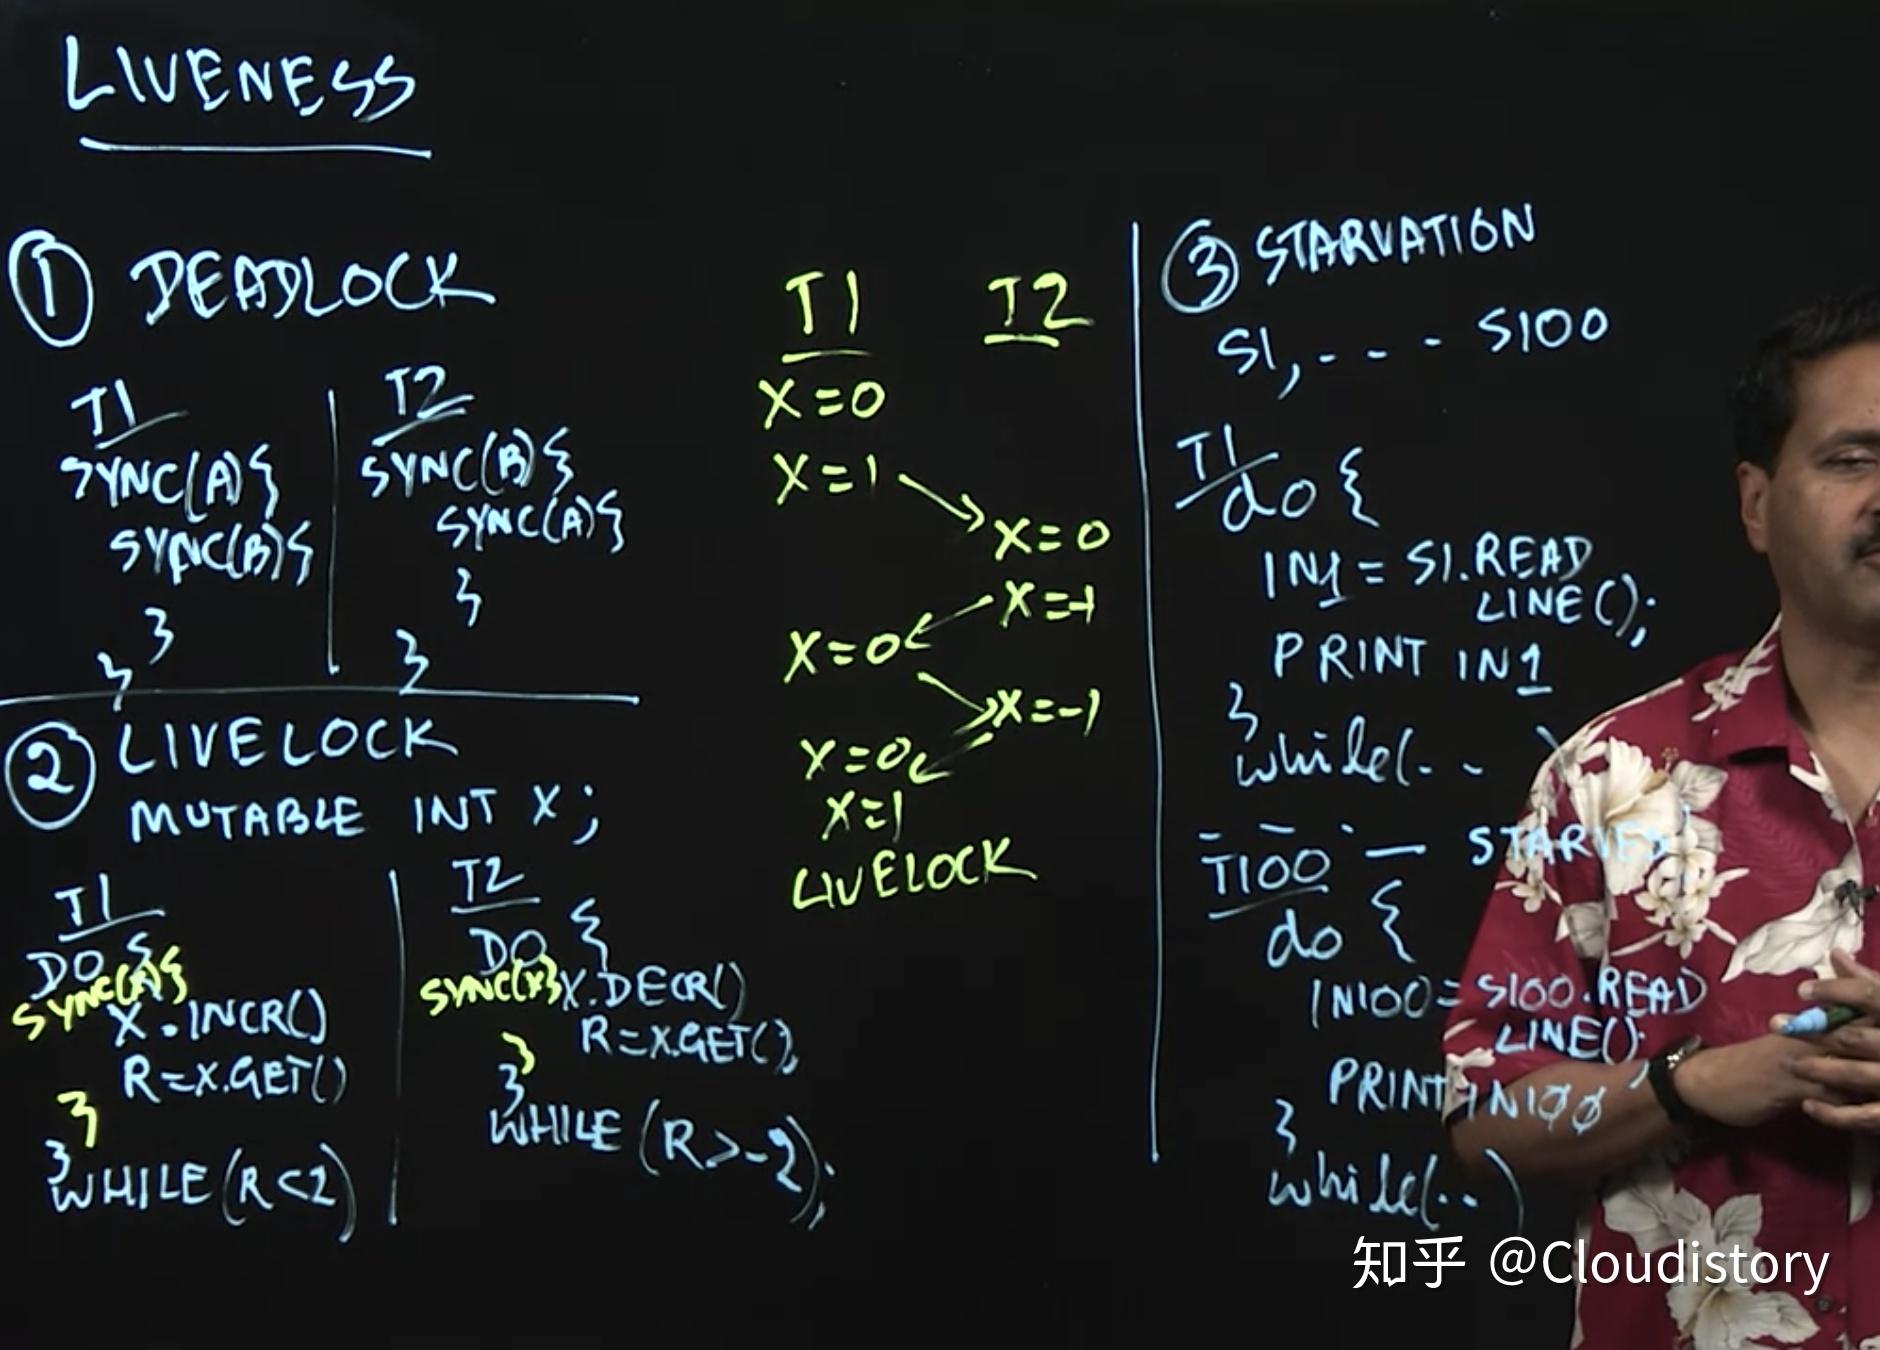 LIVENESS
① DEADLOCK
T1
SYNC(A){
SYNC(B){
}
}
T2
SYNC(B){
SYNC(A){
}
}
② LIVELOCK
MUTABLE INT X;
T1
DO {
SYNC(X){
X.INCR()
R=X.GET()
}
}
WHILE(R<2)
T2
DO {
SYNC(X){ X.DECR()
R=X.GET();
}
}
WHILE(R>-2);
T1 T2
X=0
X=1
X=0
X=-1
X=0
X=-1
X=0
X=1
LIVELOCK
③ STARVATION
S1, - - - S100
T1
do {
IN1 = S1.READ
LINE();
PRINT IN1
}
while(.. )
T100 — STARVED
do {
IN100 = S100.READ
LINE();
PRINT IN100
}
while(..)
知乎 @Cloudistory